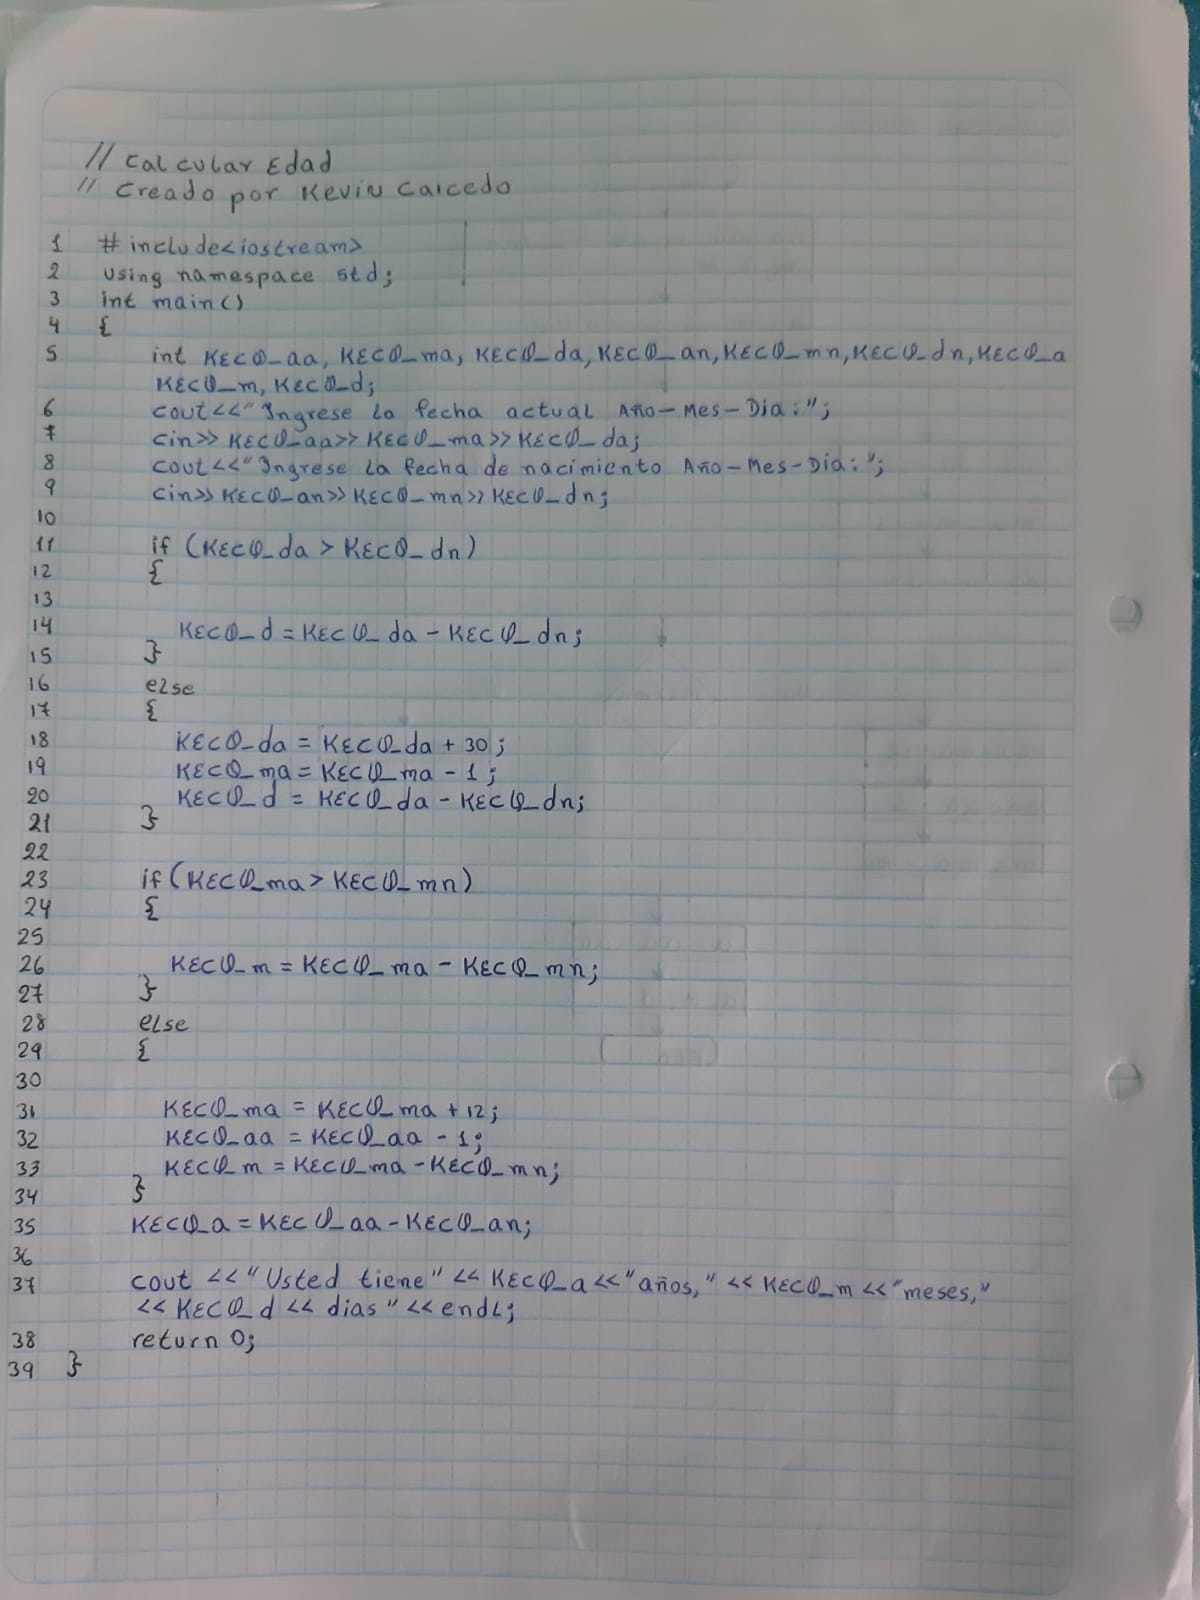 // Calcular Edad
// Creado por Kevin Caicedo
1 # include<iostream>
2 using namespace std;
3 int main()
4 {
5 int KECQ_aa, KECQ_ma, KECQ_da, KECQ_an, KECQ_mn, KECQ_dn, KECQ_a
KECQ_m, KECQ_d;
6 cout<<"Ingrese la fecha actual Año-Mes-Dia:";
7 cin>> KECQ_aa>> KECQ_ma>> KECQ_da;
8 cout<<"Ingrese la fecha de nacimiento Año-Mes-Dia:";
9 cin>> KECQ_an>> KECQ_mn>> KECQ_dn;
10
11 if (KECQ_da > KECQ_dn)
12 {
13
14 KECQ_d = KECQ_da - KECQ_dn;
15 }
16 else
17 {
18 KECQ_da = KECQ_da + 30;
19 KECQ_ma = KECQ_ma - 1;
20 KECQ_d = KECQ_da - KECQ_dn;
21 }
22
23 if (KECQ_ma > KECQ_mn)
24 {
25
26 KECQ_m = KECQ_ma - KECQ_mn;
27 }
28 else
29 {
30
31 KECQ_ma = KECQ_ma + 12;
32 KECQ_aa = KECQ_aa - 1;
33 KECQ_m = KECQ_ma - KECQ_mn;
34 }
35 KECQ_a = KECQ_aa - KECQ_an;
36
37 cout <<"Usted tiene" << KECQ_a <<"años," << KECQ_m <<"meses,"
<< KECQ_d << dias" << endl;
38 return 0;
39 }